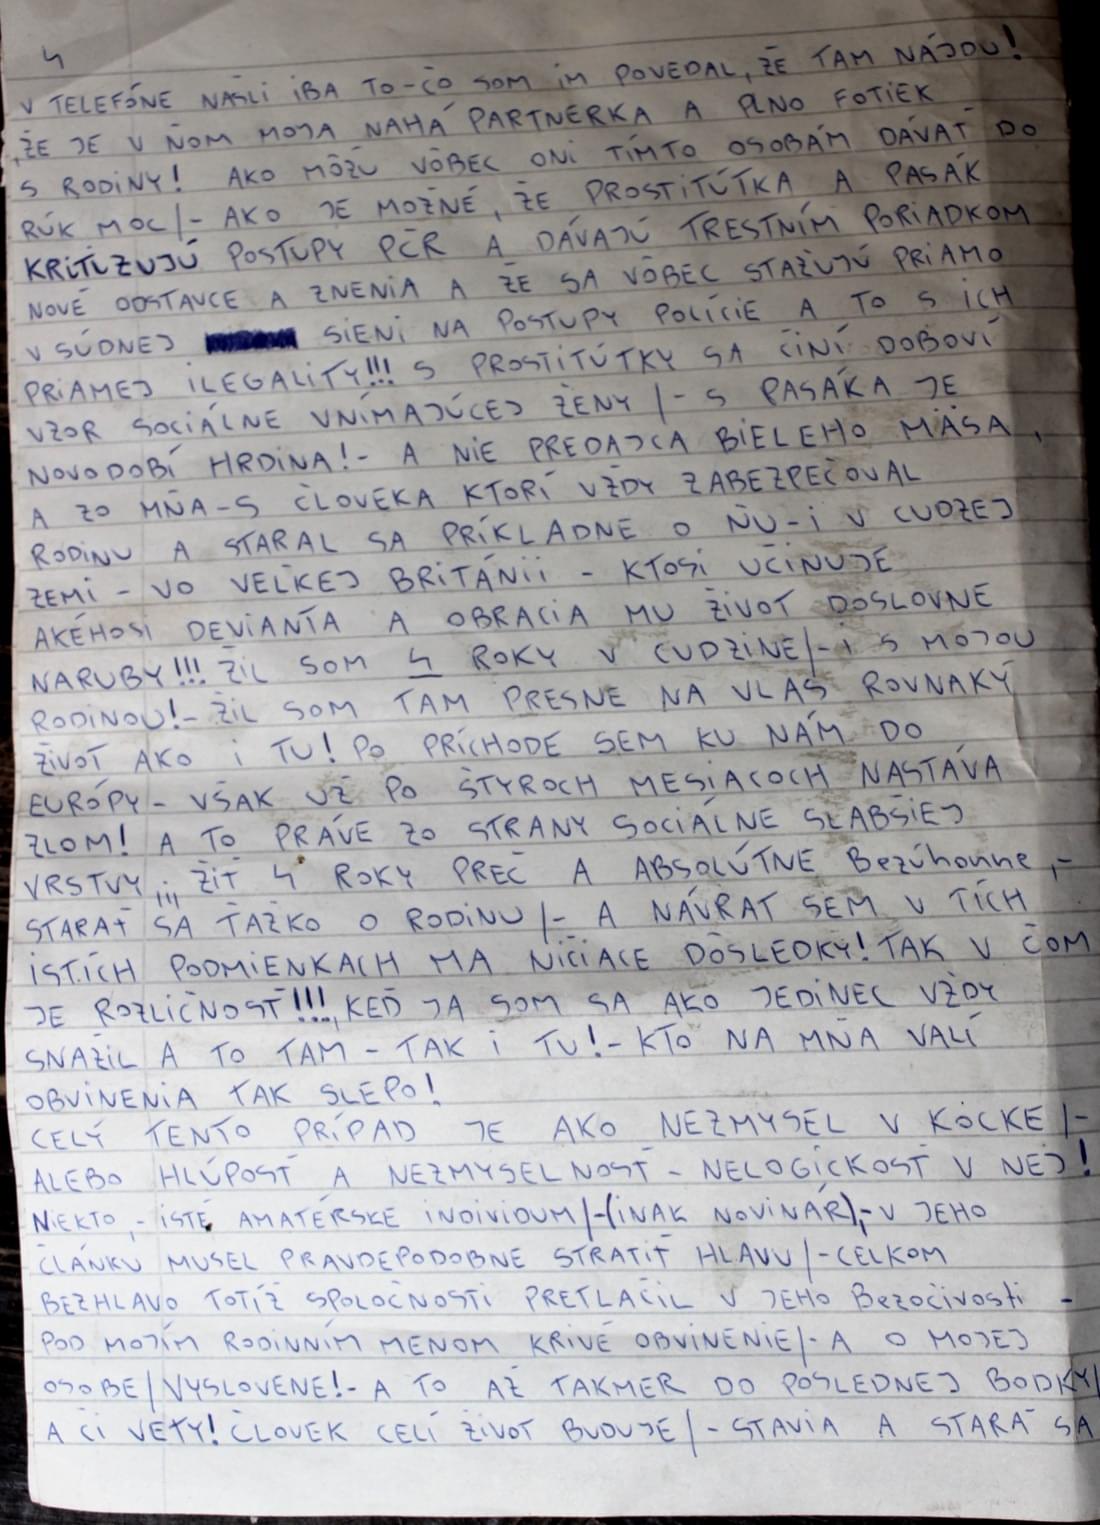 4
V TELEFÓNE NAŠLI IBA TO-ČO SOM IM POVEDAL, ŽE TAM NÁJDU!
,ŽE JE V ŇOM MOJA NAHÁ PARTNERKA A PLNO FOTIEK
S RODINY! AKO MÔŽU VÔBEC ONI TÍMTO OSOBÁM DÁVAŤ DO
RÚK MOC/- AKO JE MOŽNÉ, ŽE PROSTITÚTKA A PASÁK
KRITIZUJÚ POSTUPY PČR A DÁVAJÚ TRESTNÍM PORIADKOM
NOVÉ ODSTAVCE A ZNENIA A ŽE SA VÔBEC STAŽUJÚ PRIAMO
V SÚDNEJ SIENI NA POSTUPY POLÍCIE A TO S ICH
PRIAMEJ ILEGALITY!!! S PROSTITÚTKY SA ČINÍ DOBOVÍ
VZOR SOCIÁLNE VNÍMAJÚCEJ ŽENY /- S PASÁKA JE
NOVODOBÍ HRDINA!- A NIE PREDAJCA BIELEHO MÄSA,
A ZO MŇA-S ČLOVEKA KTORÍ VŽDY ZABEZPEČOVAL
RODINU A STARAL SA PRÍKLADNE O ŇU-I V CUDZEJ
ZEMI - VO VEĽKEJ BRITÁNII - KTOSI UČINUJE
AKÉHOSI DEVIANTA A OBRACIA MU ŽIVOT DOSLOVNE
NARUBY!!! ŽIL SOM 4 ROKY V CUDZINE/-I S MOJOU
RODINOU!- ŽIL SOM TAM PRESNE NA VLAS ROVNAKÝ
ŽIVOT AKO I TU! PO PRÍCHODE SEM KU NÁM DO
EURÓPY - VŠAK UŽ PO ŠTYROCH MESIACOCH NASTÁVA
ZLOM! A TO PRÁVE ZO STRANY SOCIÁLNE SLABŠIEJ
VRSTVY ;;; ŽIŤ 4 ROKY PREČ A ABSOLÚTNE Bezúhonne,-
STARAŤ SA ŤAŽKO O RODINU/- A NÁVRAT SEM V TÍCH
ISTÍCH PODMIENKACH MA NIČIACE DÔSLEDKY! TAK V ČOM
JE ROZLIČNOSŤ!!!, KEĎ JA SOM SA AKO JEDINEC VŽDY
SNAŽIL A TO TAM - TAK I TU!- KTO NA MŇA VALÍ
OBVINENIA TAK SLEPO!
CELÝ TENTO PRÍPAD JE AKO NEZMYSEL V KOCKE/-
ALEBO HLÚPOSŤ A NEZMYSELNOSŤ - NELOGICKOSŤ V NEJ!
NIEKTO,- ISTÉ AMATÉRSKE INDIVIDUM/-(INAK NOVINÁŘ),-V JEHO
ČLÁNKU MUSEL PRAVDEPODOBNE STRATIŤ HLAVU/-CELKOM
BEZHLAVO TOTIŽ SPOLOČNOSTI PRETLAČIL V JEHO Bezočivosti -
POD MOJÍM RODINNÍM MENOM KRIVÉ OBVINENIE/- A O MOJEJ
OSOBE/VYSLOVENE!- A TO AŽ TAKMER DO POSLEDNEJ BODKY/
A ČI VETY! ČLOVEK CELÍ ŽIVOT BUDUJE/- STAVIA A STARÁ SA